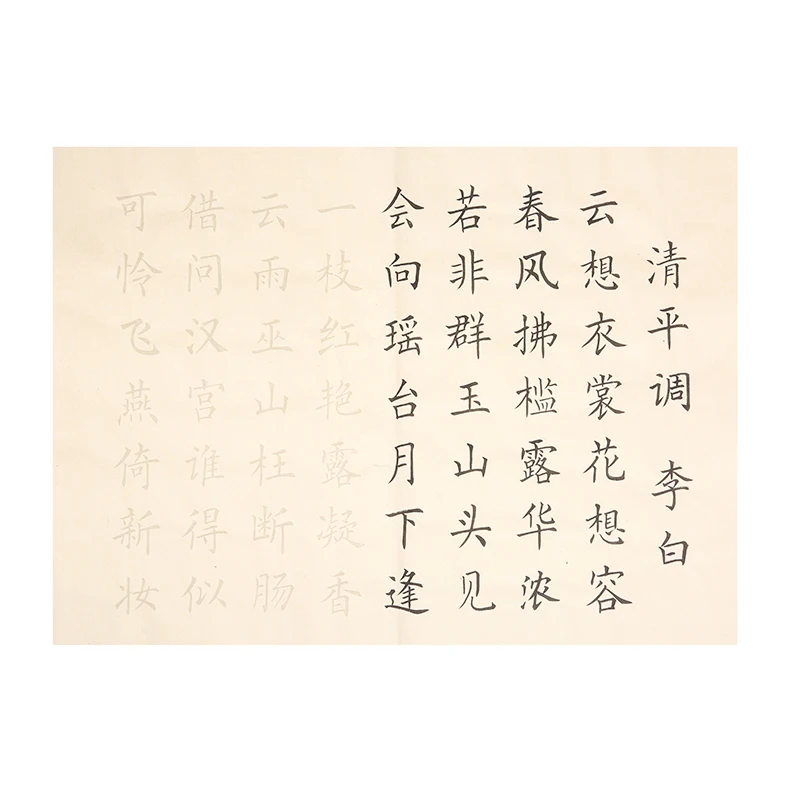 清平调 李白
云想衣裳花想容
春风拂槛露华浓
若非群玉山头见
会向瑶台月下逢
一枝红艳露凝香
云雨巫山枉断肠
借问汉宫谁得似
可怜飞燕倚新妆